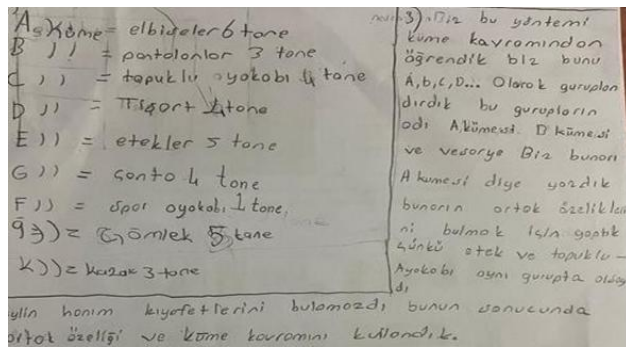 A, Küme = elbiseler 6 tane
B )) = pantolonlar 3 tane
C )) = topuklu ayokobı 4 tane
D )) = Tişort 4 tone
E )) = etekler 5 tane
G )) = çonto 4 tone
F )) = spor oyokobı 1 tone,
ğ )) = Gömlek 5 tane
K )) = kazak 3 tone
3). Biz bu yöntemi
küme kavramından
öğrendik biz bunu
A,b,C,D... Olorok gurupları
dırdık bu gurupların
odı A kümesi D kümesi
ve vesorye Biz bunorı
A kumesi diye yozdık
bunorın ortok özelikleri
ni bulmok için yoptık
çünkü etek ve topuklu-
Ayokobı oynı gurupta olduğ
dı
ylin honım kıyofetlerini bulomozdı bunun sonucunda
ortok özelliği ve küme kovromını kullondık.